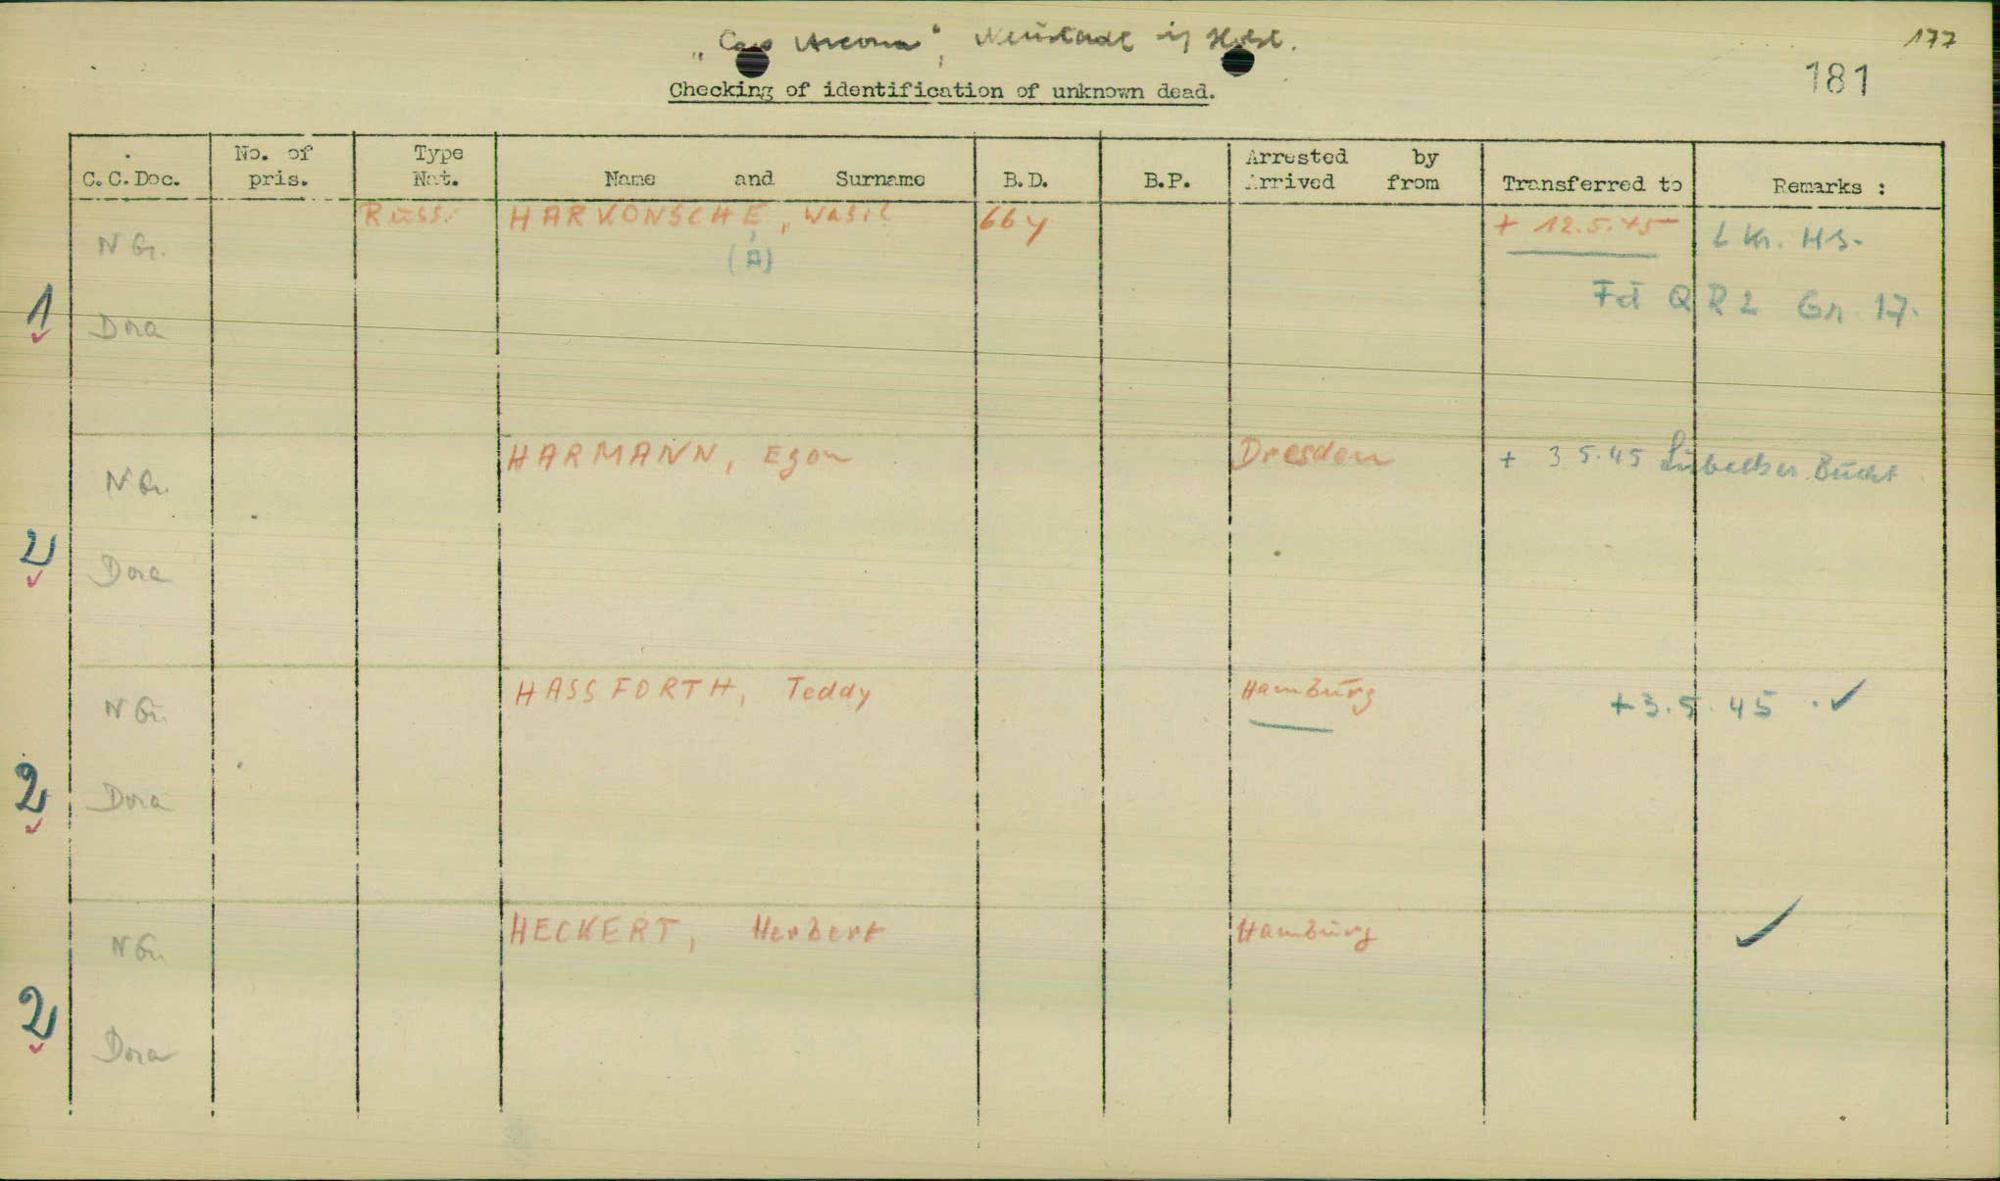 „Cap Arcona“, Neustadt i/ Holst.
177
181
Checking of identification of unknown dead.
C.C.Doc. No. of pris. Type Nat. Name and Surname B.D. B.P. Arrested by Arrived from Transferred to Remarks :
Russ. HARKONSCHE, Wasil 66y + 12.5.45 LKr. HS.
N Gr. (A)
1 Dora Fd Q R 2 Gr. 17.
HARMANN, Egon Dresden + 3 5.45 Lübecker Bucht
N Gr.
2 Dora
HASSFORTH, Teddy Hamburg +3.5.45
N Gr.
2 Dora
HECKERT, Herbert Hamburg
N Gr.
2 Dora